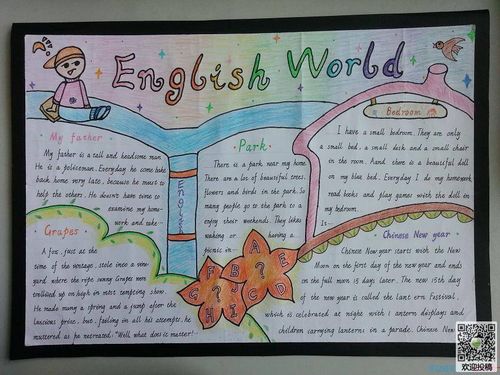 English World
My father
My father is a tall and handsome man
He is a policeman. Everyday he come bake
back home very late, because he must to
help the others. He doesn't have time to
examine my home-
work and take-
English
Park
There is a park near my home.
There are a lot of beautiful trees,
flowers and birds in the park. So
many people go to the park to a
enjoy their weekends. They likes
walking or having a
picnic in—
Bedroom
I have a small bedroom. They are only
a small bed, a small desk and a small chair
in the room. Aand there is a beautiful doll
on my blue bed. Everyday I do my homework
read books and play games with the doll in
my bedroom.
Is—
Grapes
A fox, just at the
time of the vintage, stole into a vine-
yard where the ripe sunny Grapes were
trellised up on high in most tempting show.
He made many a spring and a jump after the
luscious prize, but, failing in all his attempts, he
muttered as he retreated: "Well what does it matter!
A
E
F
?
B
J
?
D
G
C
S
H
I
Chinese New year
Chinese New year starts with the New
Moon on the first day of the new year and ends
on the full moon 15 days later. The new 15th day
of the new year is called the lantern Festival,
which is celebrated at night with lantern displays and
children carrying lanterns in a parade. Chinese New
欢迎投稿